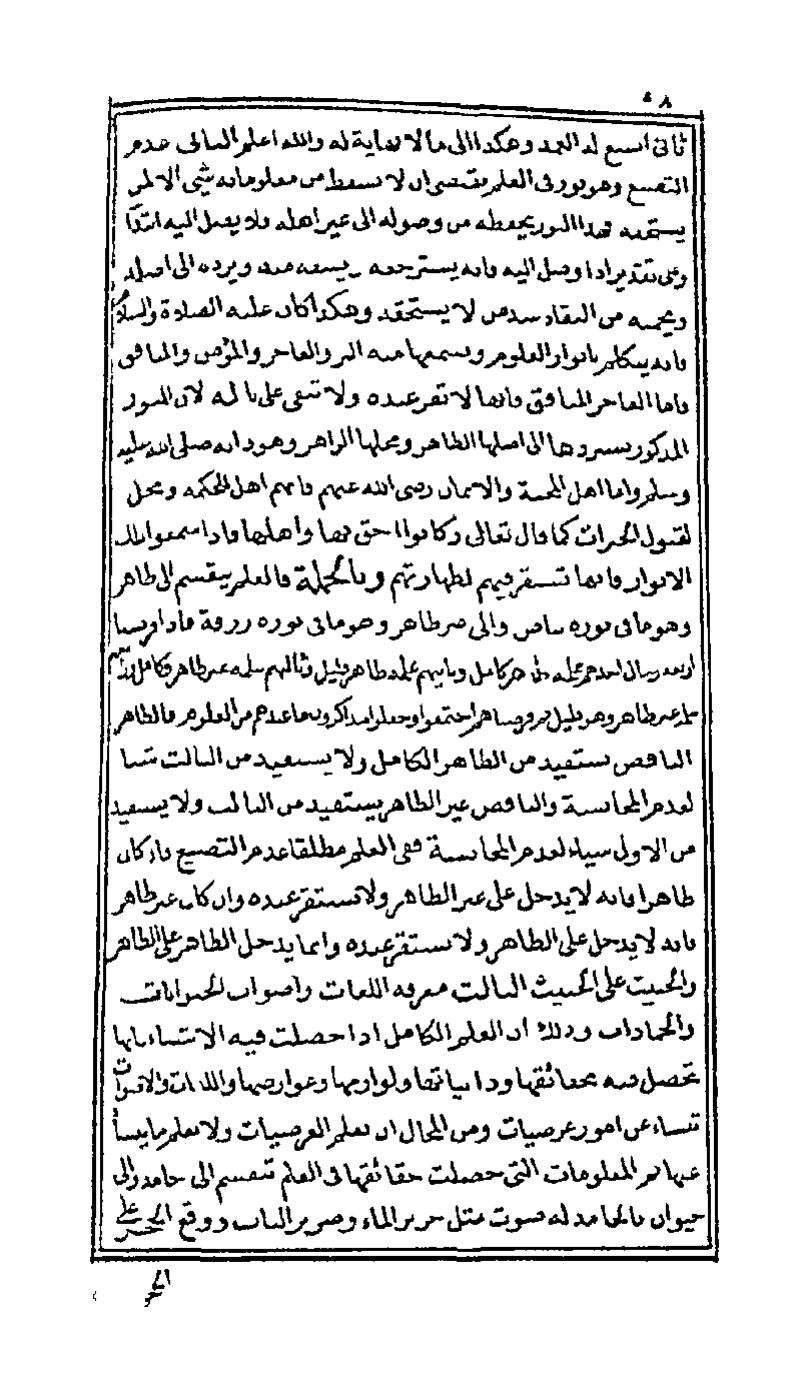 ٥٨
ثانى اتسع له البعد وهكذا الى ما لا نهاية له والله اعلم الثانى عدم
التضييع وهو نور فى العلم يقتضى ان لا يسقط من معلوماته شئ الا لمن
يستحقه فهذا النور يحفظه من وصوله الى غير اهله فلا يصل اليه ابتداً
وعلى تقدير اذا وصل اليه فانه يسترجعه ويسعه منه ويرده الى اصله
ويحميه من البقاء عند من لا يستحقه وهكذا كان عليه الصلاة والسلام
فانه يتكلم بانوار العلوم ويسمعها منه البر والفاجر والمؤمن والمنافق
فاما الفاجر المنافق فانها لا تقر عنده ولا تبقى على باله لان النور
المذكور يستردها الى اصلها الطاهر ومحلها الزاهر وهو ذاته صلى الله عليه
وسلم واما اهل المحبة والايمان رضى الله عنهم فانهم اهل الحكمة ومحل
لقبول الخيرات كما قال تعالى وكانوا احق بها واهلها فاذا سمعوا تلك
الانوار فانها تستقر فيهم لطهارتهم وبالجملة فالعلم ينقسم الى طاهر
وهو ما فى نوره بياض والى غير طاهر وهو ما فى نوره زرقة فاذا فرضنا
اربعة رجال احدهم علمه طاهر كامل وثانيهم علمه طاهر قليل وثالثهم علمه غير طاهر وكامل ورابعهم
علمه غير طاهر وهو قليل ثم فرضناهم اجتمعوا وجعلوا يتذاكرون ما عندهم من العلوم فالطاهر
الناقص يستفيد من الطاهر الكامل ولا يستفيد من الثالث شيئا
لعدم المجانسة والناقص غير الطاهر يستفيد من الثالث ولا يستفيد
من الاول شيئا لعدم المجانسة ففى العلم مطلقا عدم التضييع فان كان
طاهرا فانه لا يدخل على غير الطاهر ولا يستقر عنده وان كان غير طاهر
فانه لا يدخل على الطاهر ولا يستقر عنده وانما يدخل الطاهر على الطاهر
والخبيث على الخبيث الثالث معرفة اللغات واصوات الحيوانات
والجمادات وذلك ان العلم الكامل اذا حصلت فيه الاشياء فانها
تحصل فيه بحقائقها وذاتياتها ولوازمها وعوارضها واللغات والاصوات
تنشاء عن امور عرضيات ومن المحال ان يعلم العرضيات ولا يعلم ما ينشأ
عنها ثم المعلومات التى حصلت حقائقها فى العلم تنقسم الى جامد والى
حيوان فالجامد له صوت مثل خرير الماء وصرير الباب ووقع الحجر على
الحجر